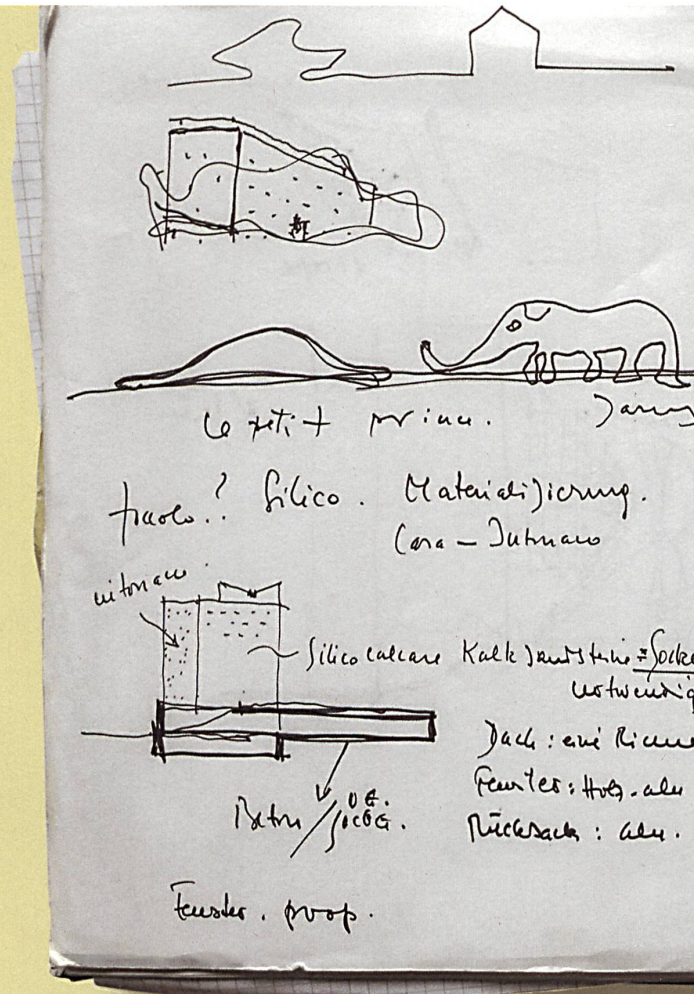 le petit prince.
Silico. Materialisierung.
Casa – Intonaco
intonaco
Silico calcare Kalksandsteine = Socke
notwendig
Dach: eine Rinne
Beton /
Fenster: Holz-alu
Rucksack: alu.
Fenster. prop.